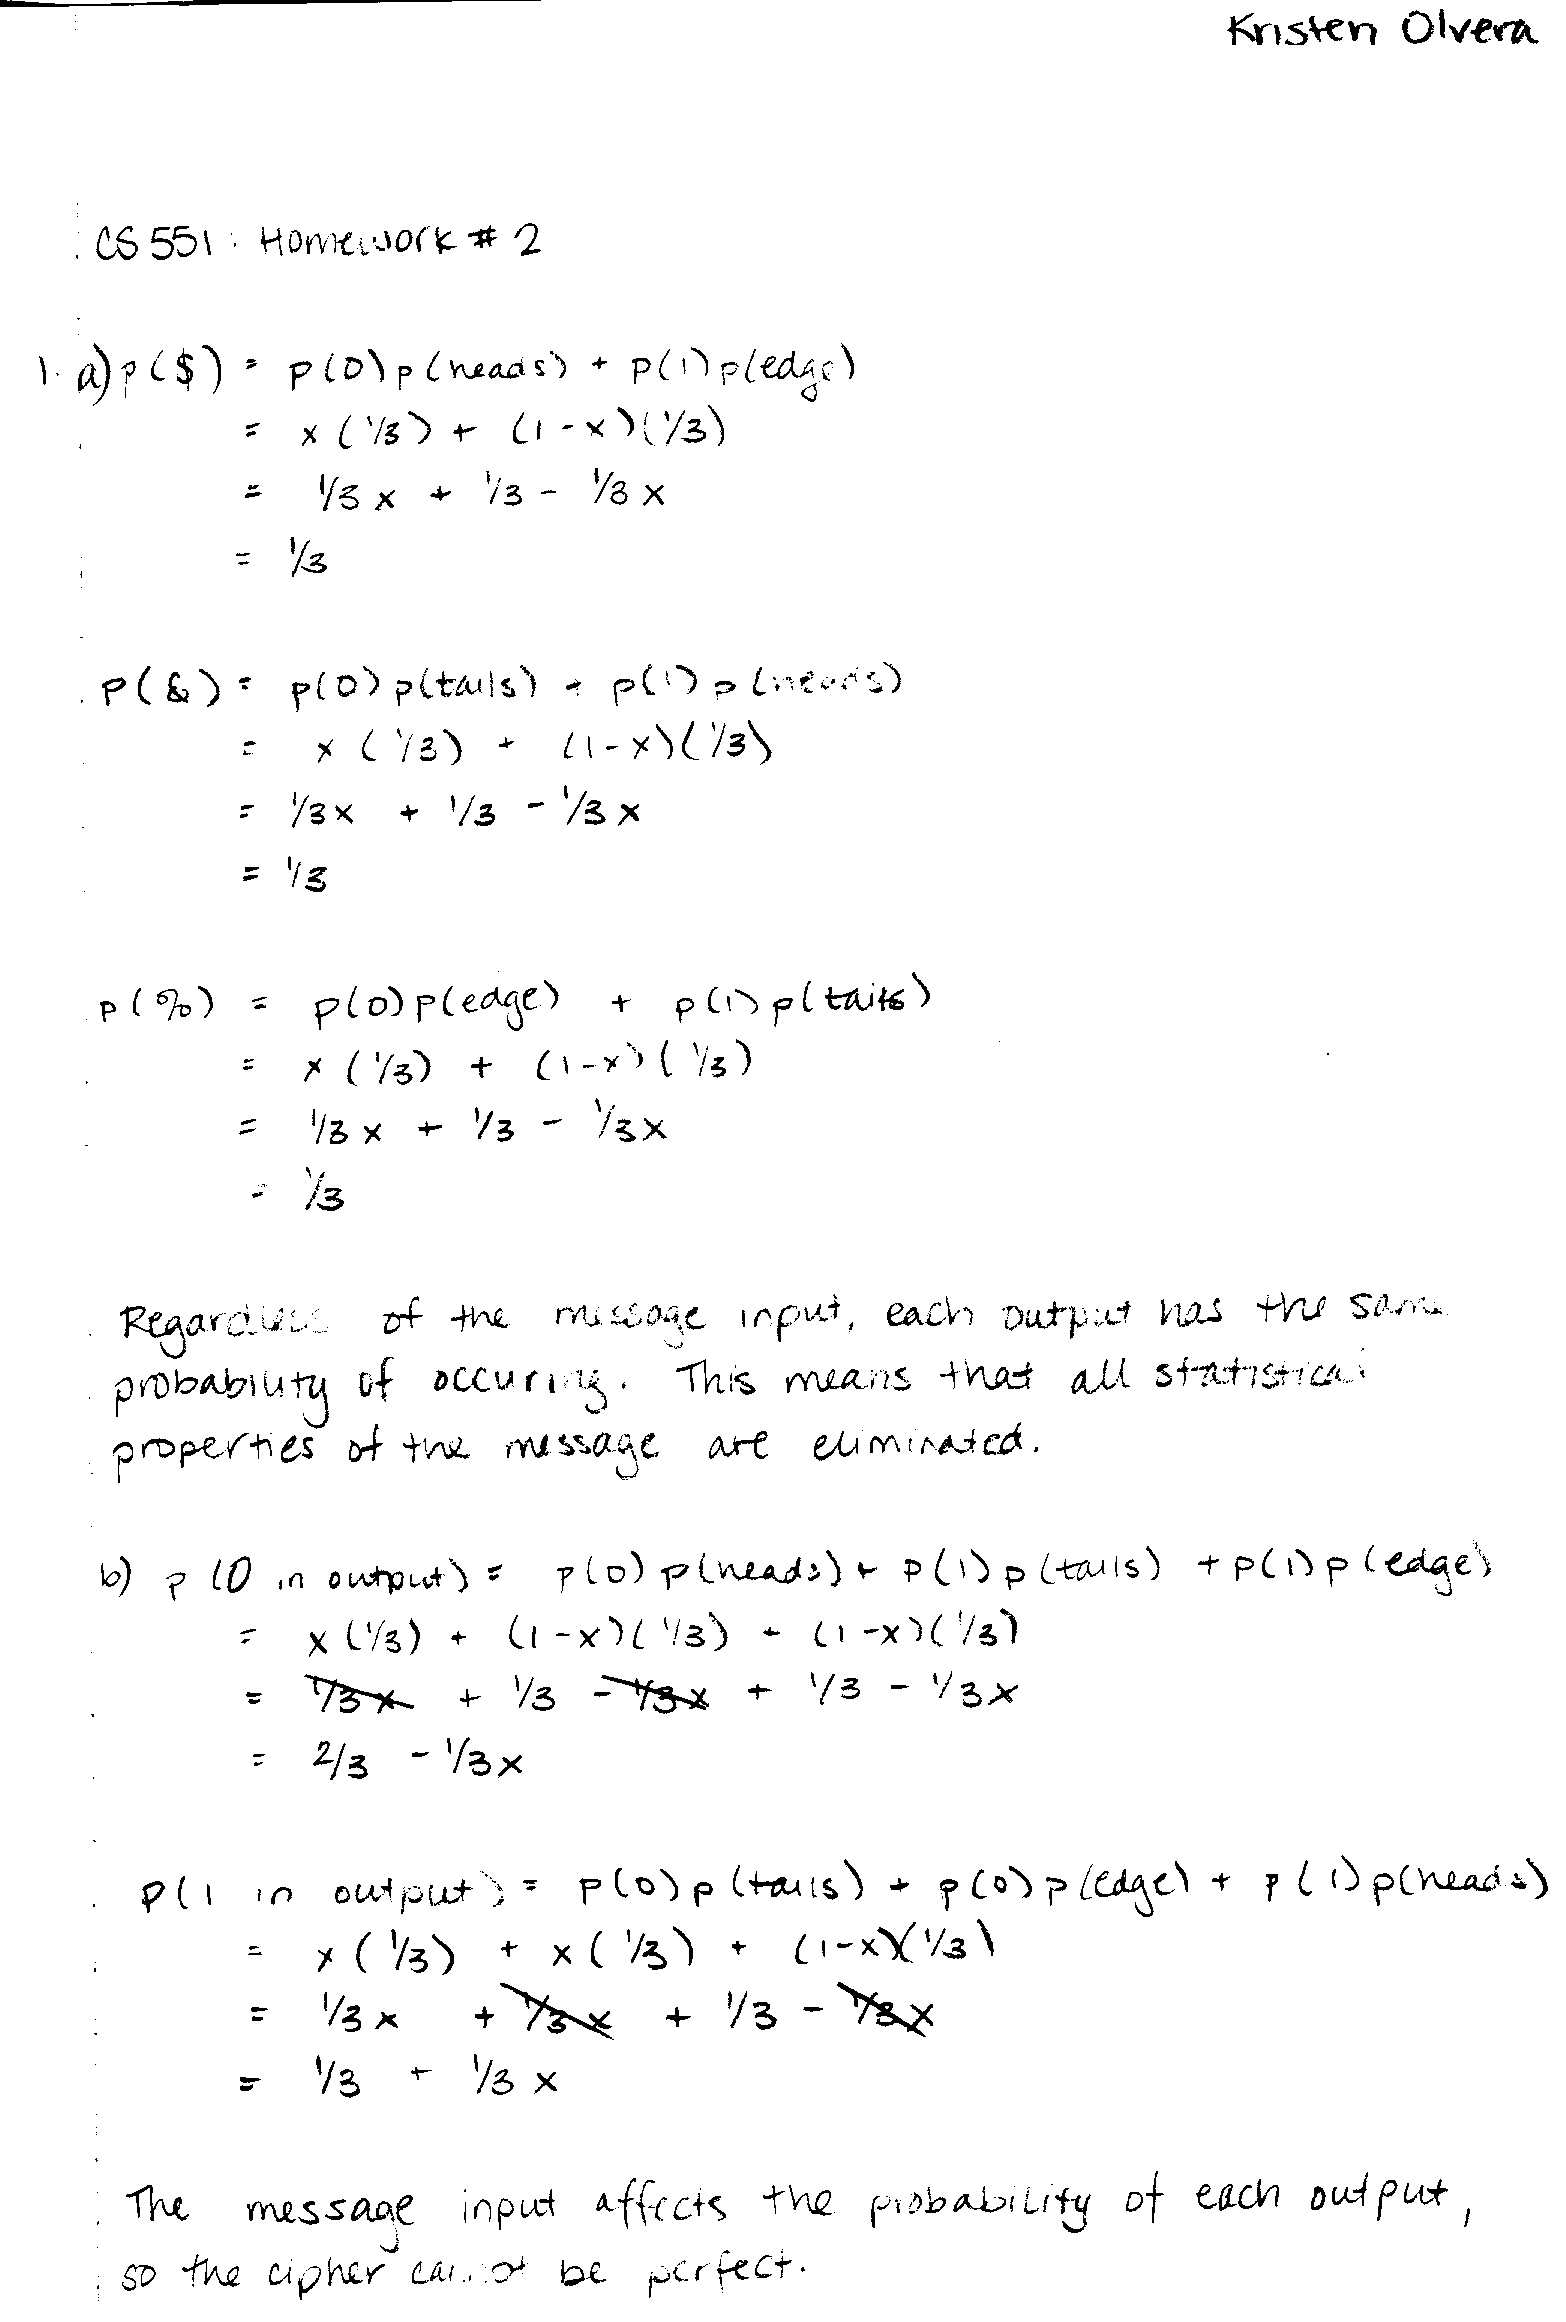 Kristen Olvera
CS 551: Homework # 2
1. a) p($) = p(0)p(heads) + p(1)p(edge)
= x(1/3) + (1-x)(1/3)
= 1/3x + 1/3 - 1/3x
= 1/3
p(&) = p(0)p(tails) + p(1)p(heads)
= x(1/3) + (1-x)(1/3)
= 1/3x + 1/3 - 1/3x
= 1/3
p(%) = p(0)p(edge) + p(1)p(tails)
= x(1/3) + (1-x)(1/3)
= 1/3x + 1/3 - 1/3x
= 1/3
Regardless of the message input, each output has the same
probability of occuring. This means that all statistical
properties of the message are eliminated.
b) p(0 in output) = p(0)p(heads) + p(1)p(tails) + p(1)p(edge)
= x(1/3) + (1-x)(1/3) + (1-x)(1/3)
= 1/3x + 1/3 - 1/3x + 1/3 - 1/3x
= 2/3 - 1/3x
p(1 in output) = p(0)p(tails) + p(0)p(edge) + p(1)p(heads)
= x(1/3) + x(1/3) + (1-x)(1/3)
= 1/3x + 1/3x + 1/3 - 1/3x
= 1/3 + 1/3x
The message input affects the probability of each output,
so the cipher cannot be perfect.